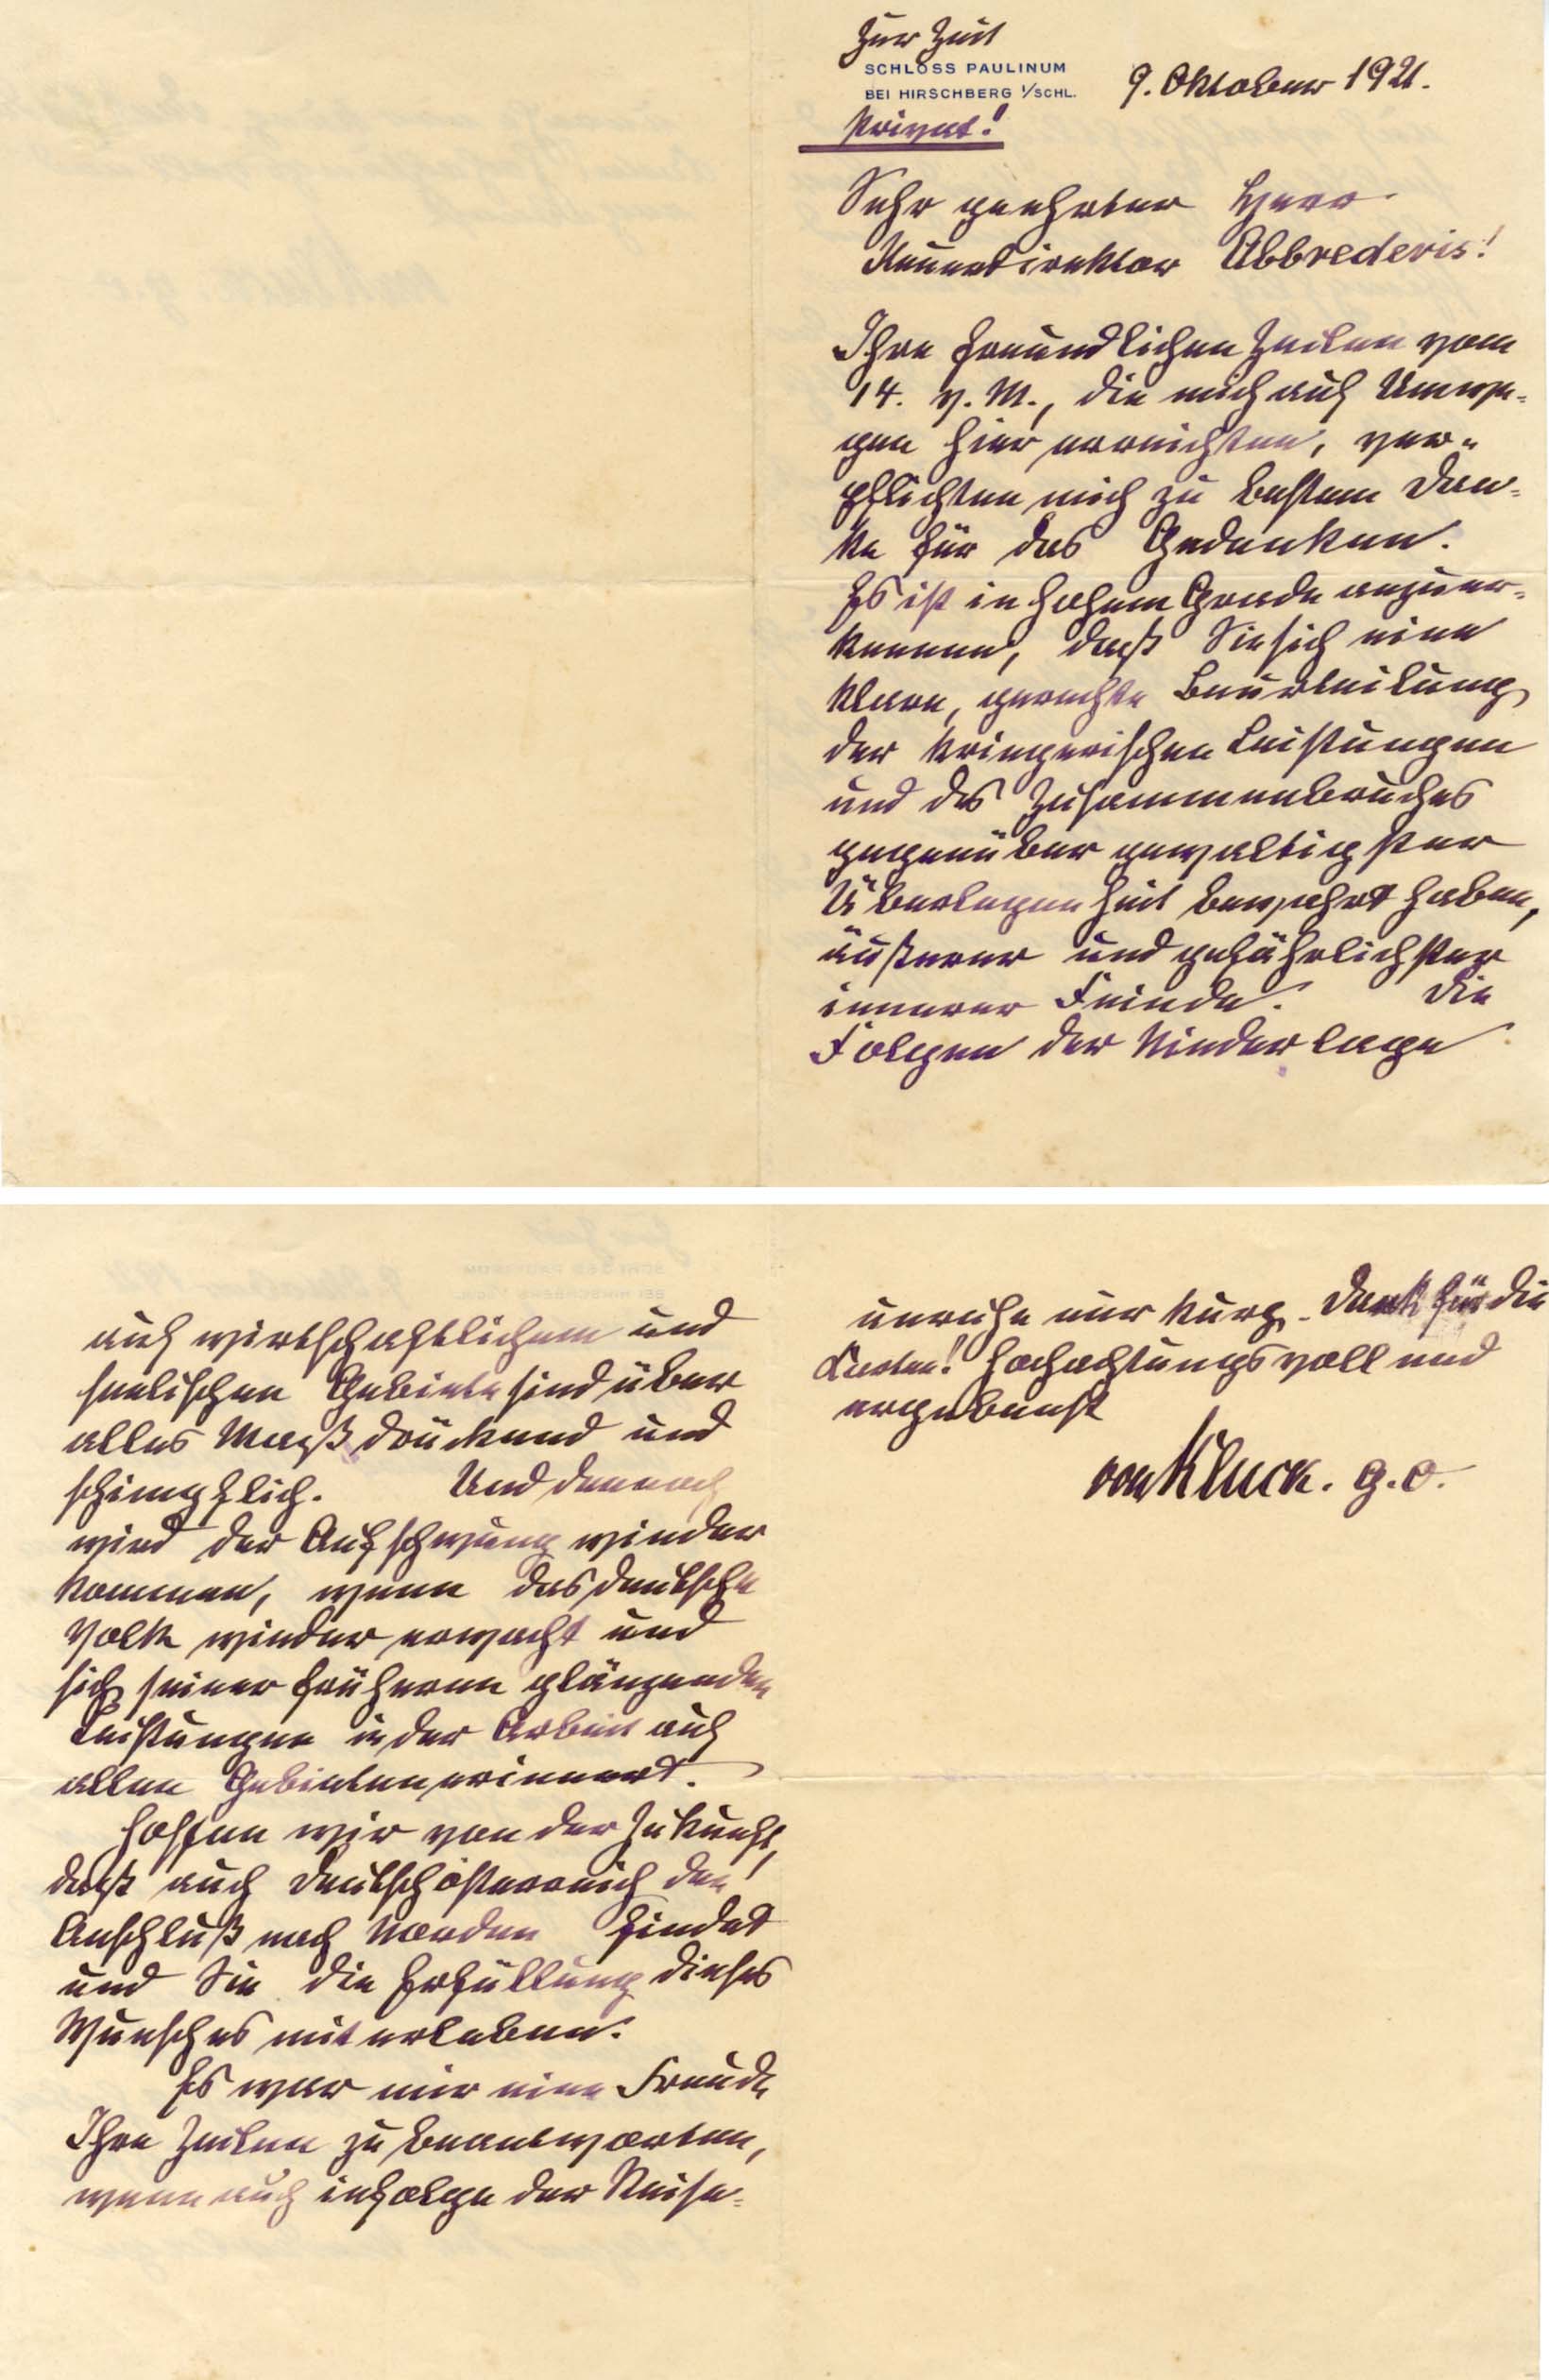 Zur Zeit
SCHLOSS PAULINUM
BEI HIRSCHBERG I/SCHL.
9. Oktober 1921.
Privat!
Sehr geehrter Herr
Abbrederis!
Ihre freundlichen Zeilen vom
14. v. M., die mich auf Umwe-
gen hier erreichten, ver-
pflichten mich zu bestem Dan-
ke für das Gedenken.
Es ist in hohem Grade anzuer-
kennen, daß Sie sich eine
klare, gerechte Beurteilung
der kriegerischen Leistungen
und des Zusammenbruches
gegenüber gewaltigster
Überlegenheit bewahrt haben,
äußerer und gefährlichster
innerer Feinde. Die
Folgen der Niederlage
auf wirtschaftlichem und
seelischen Gebiete sind über
alles Maß drückend und
schimpflich. Und dennoch
wird der Aufschwung wieder
kommen, wenn das deutsche
Volk wieder erwacht und
sich seiner früheren glänzenden
Leistungen in der Arbeit auf
allen Gebieten erinnert.
Hoffen wir von der Zukunft,
daß auch Deutschösterreich den
Anschluß nach Norden findet
und Sie die Erfüllung dieses
Wunsches miterleben.
Es war mir eine Freude
Ihre Zeilen zu beantworten,
wenn auch infolge der Reise-
unruhe nur kurz. Dank für die
Karten! Hochachtungsvoll und
ergebenst
von Kluck. G.O.